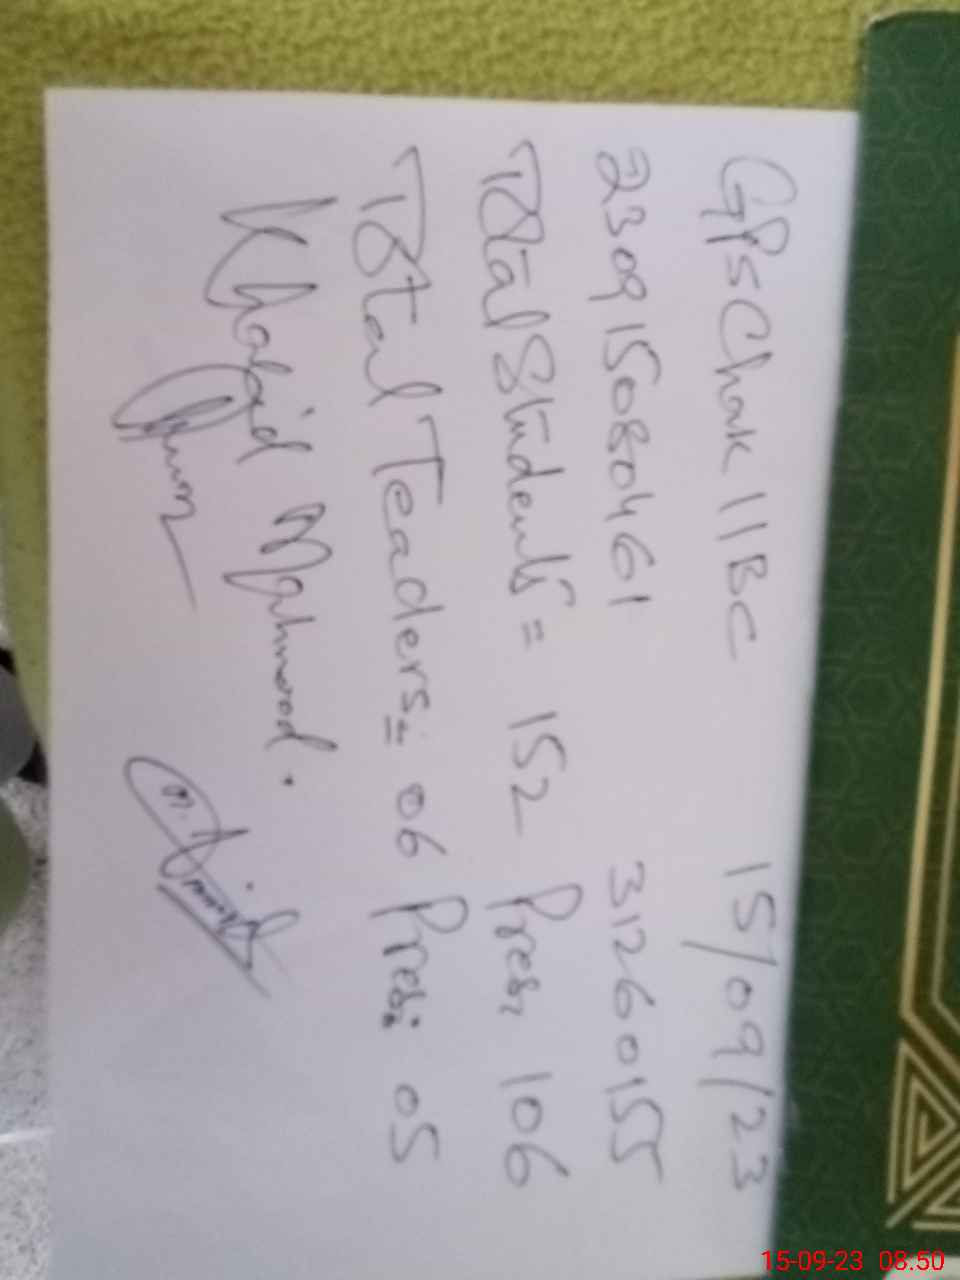 GPS Chak 11BC 15/09/23
230915080461 31260155
Total Students = 152 Pres: 106
Total Teachers = 06 Pres: 05
Khalid Mahmood.
15-09-23 08.50